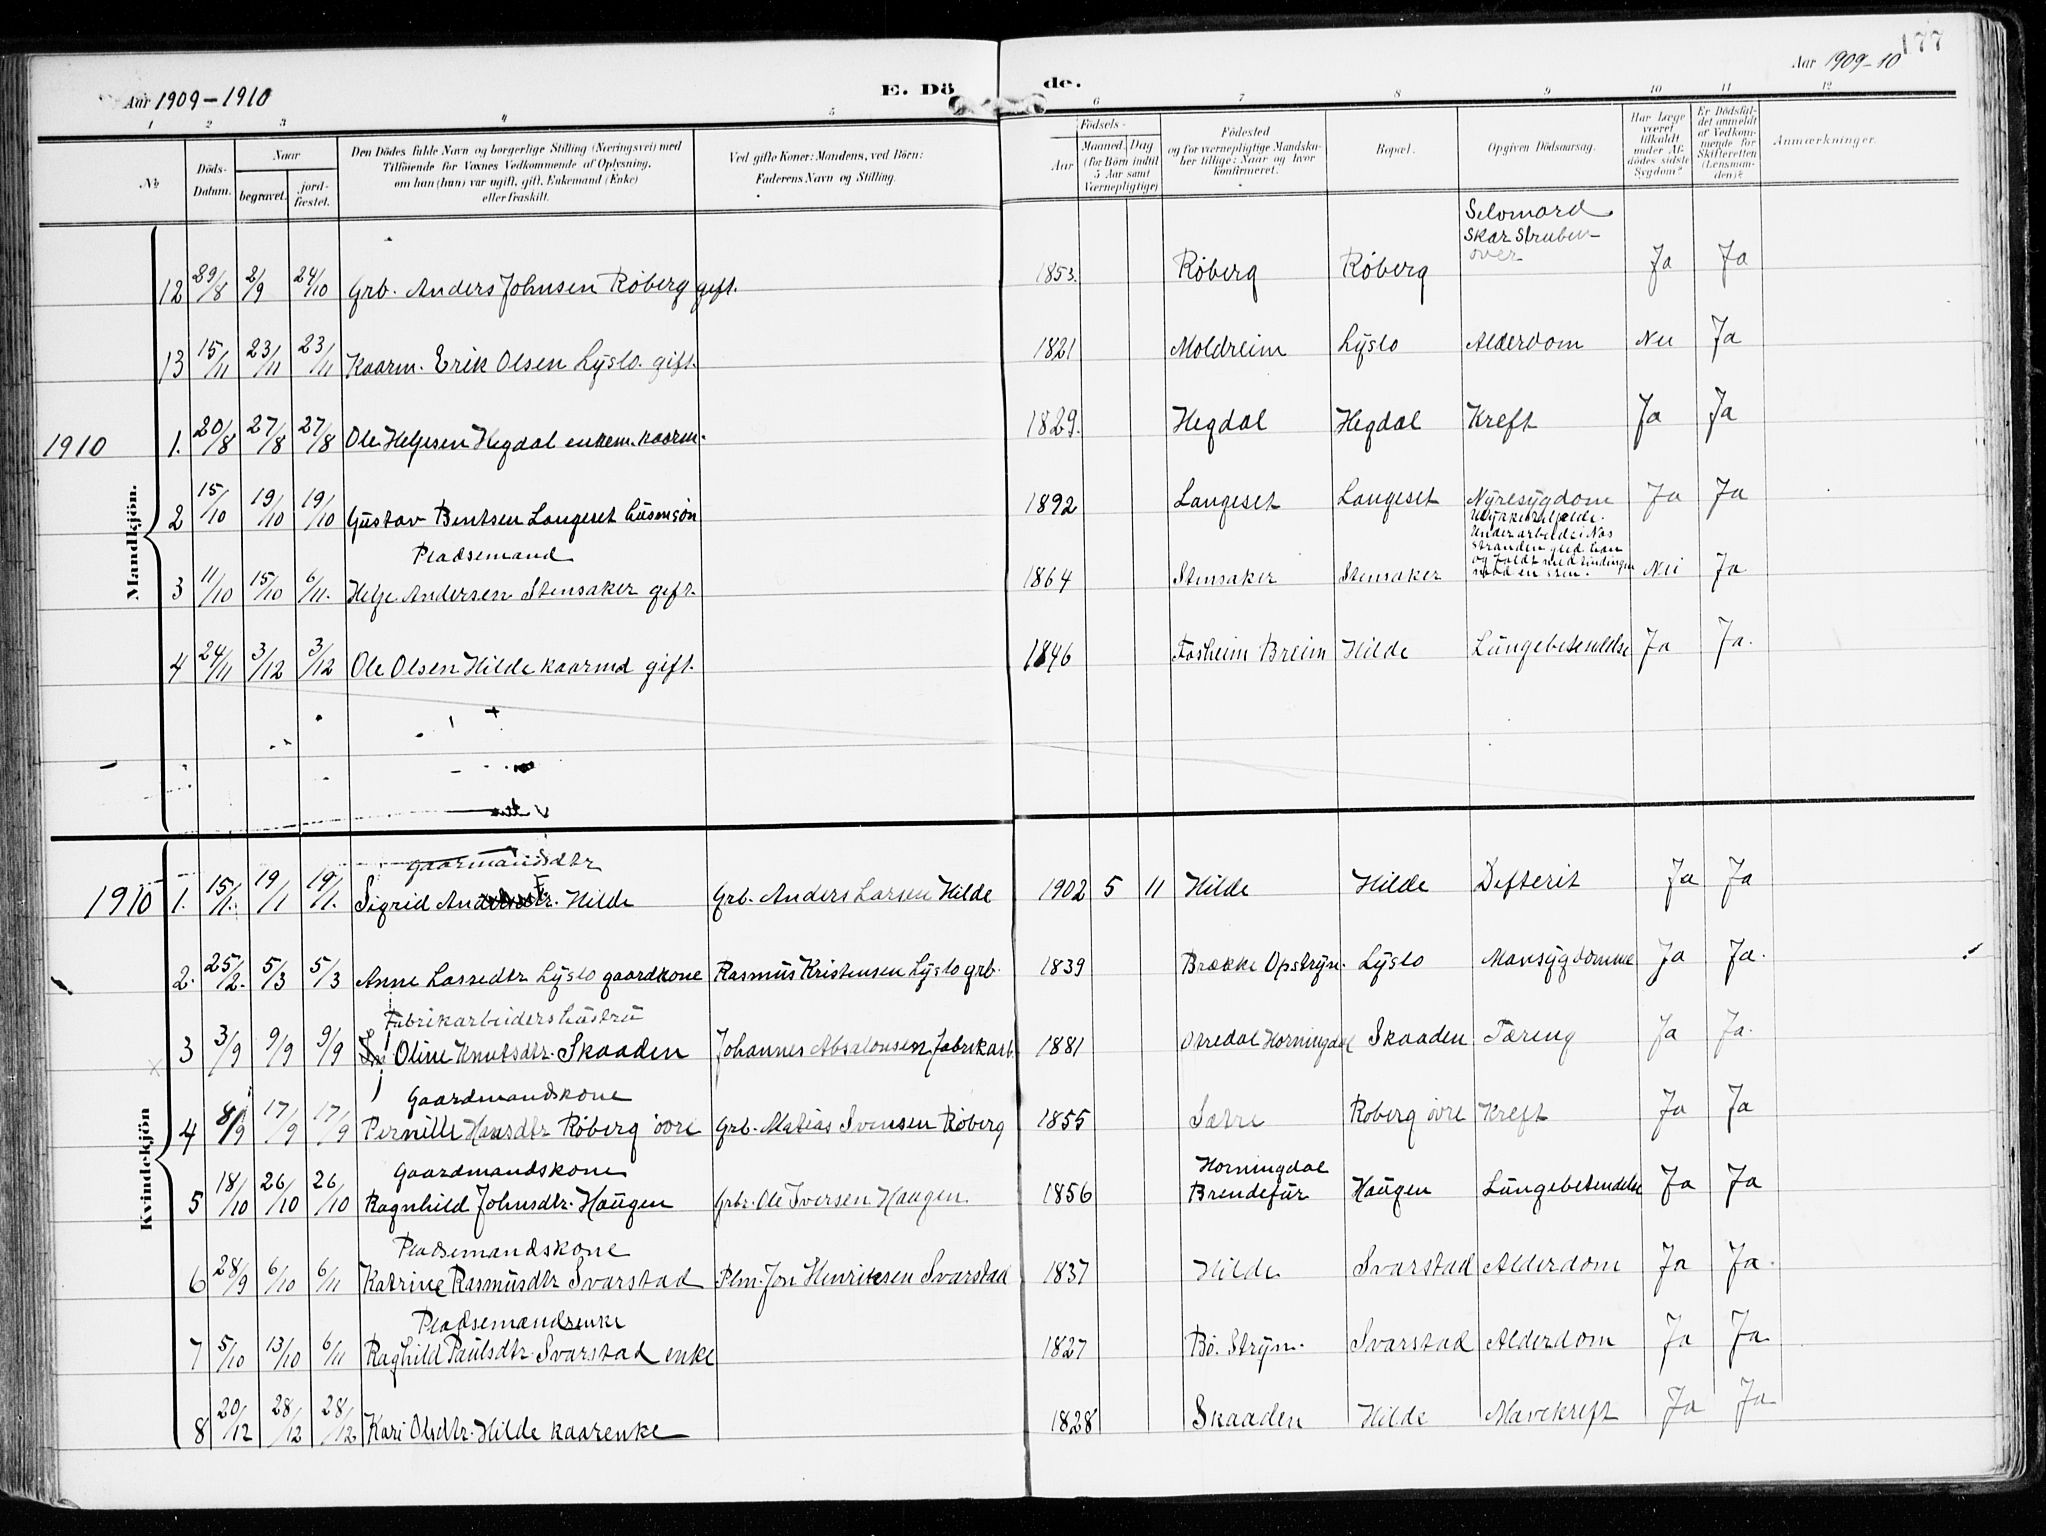 177
Aar 1909-1910
E. Dö de.
Aar 1909-10
1 2 3 4 5 6 7 8 9 10 11 12
No
Döds-Datum.
Naar
begravet.
jord-fæstet.
Den Dödes fulde Navn og borgerlige Stilling (Næringsvei) med
Tilföiende for Voxnes Vedkommende af Oplysning,
om han (hun) var ugift, gift, Enkemand (Enke)
eller fraskilt.
Ved gifte Koner: Mandens, ved Börn:
Faderens Navn og Stilling.
Födsels-
Aar
Maaned, Dag
(for Börn indtil
5 Aar samt
Værnepligtige)
Födested
og for værnepligtige Mandska-
ber tillige: Naar og hvor
konfirmeret.
Bopæl.
Opgiven Dödsaarsag.
Har Læge
været
tilkaldt
under Af-
dödes sidste
Sygdom?
Er Dödsfal-
det anmeldt
af Vedkom-
mende for
Skifteretten
(Lensman-
den)?
Anmærkninger.
Mandkjön.
Selvmord
Skar Struben
over
12 29/8 2/9 24/10 Grb. Anders Johnsen Røberg gift. 1853. Røberg Røberg Ja Ja
13 15/11 23/11 23/11 Kaarm. Erik Olsen Lyslo. gift. 1821 Moldreim Lyslo Alderdom Nei Ja
1910 1. 20/8 27/8 27/8 Ole Heljesen Hegdal enkem. kaarm. 1829. Hegdal Hegdal Kreft Ja Ja
2 15/10 19/10 19/10 Gustav Bentsen Langeset husmsøn 1892 Langeset Langeset Nyresygdom Ja Ja
Pladsemand
Ulykkestilfælde.
Under arbeide i Nos
stranden gled han
og faldt med tindingen
mod en sten.
3 11/10 15/10 6/11. Helje Andersen Stensaker gift. 1864 Stensaker Stensaker Nei Ja
4 24/11 3/12 3/12 Ole Olsen Hilde kaarmd gift. 1846 Fosheim Breim Hilde Lungebetendelse Ja Ja.
Kvindekjön
gaarmandsdtr
1910 1. 15/1. 19/1 19/1. Sigrid Hilde Grb. Anders Larsen Hilde 1902 5 11 Hilde Hilde Difterit Ja Ja
2. 25/2. 5/3 5/3 Anne Lassedtr Lyslo gaardkone Rasmus Kristensen Lyslo grb. 1839 Brække Opstryn. Lyslo Mavsygdomme Ja Ja.
Fabrikarbeidershustru
3 3/9 9/9 9/9 Oline Knutsdtr. Skaaden Johannes Absalonsen Fabrikarb. 1881 Orredal Horningdal Skaaden Tæring Ja Ja.
Gaardmandskone
4 8/9 17/9 17/9 Pernille Hansdtr Røberg övre Grb. Matias Svensen Röberg 1855 Sætre Roberg övre Kreft Ja Ja
Gaardmandskone
Horningdal
5 18/10 26/10 26/10 Ragnhild Johnsdtr. Haugen Grbr. Ole Iversen Haugen. 1856 Brendefur Haugen Lungebetendelse Ja Ja
Pladsemandskone
6 28/9 6/10 6/11 Katrine Rasmusdtr Svarstad Plm. Jon Henriksen Svarstad 1837 Hilde Svarstad Alderdom Ja Ja.
Pladsemandsenke
7 5/10 13/10 6/11 Raghild Paulsdtr. Svarstad enke 1827 Bö. Stryn. Svarstad Alderdom Ja Ja
8 20/12 28/12 28/12 Kari Olsdtr. Hilde kaarenke 1828 Skaaden Hilde Mavekreft Ja Ja